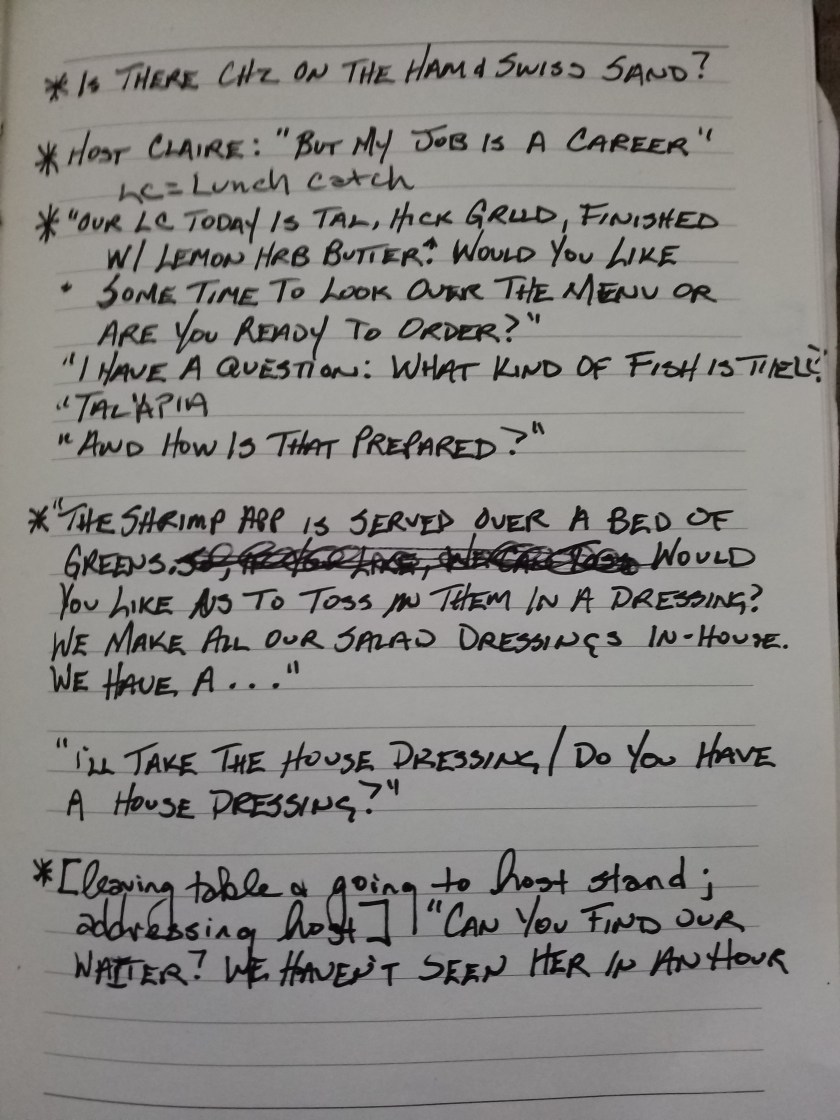 * Is THERE CHZ ON THE HAM & SWISS SAND?
* HOST CLAIRE: "BUT MY JOB IS A CAREER"
LC = Lunch catch
* "OUR LC TODAY IS TAL, HICK GRLLD, FINISHED
W/ LEMON HRB BUTTER. WOULD YOU LIKE
SOME TIME TO LOOK OVER THE MENU OR
ARE YOU READY TO ORDER?"
"I HAVE A QUESTION: WHAT KIND OF FISH IS
"TAL'APIA
"AND HOW IS THAT PREPARED?"
* "THE SHRIMP APP IS SERVED OVER A BED OF
GREENS. WOULD
YOU LIKE US TO TOSS IN THEM IN A DRESSING?
WE MAKE ALL OUR SALAD DRESSINGS IN-HOUSE.
WE HAVE A . . ."
"I'LL TAKE THE HOUSE DRESSING / DO YOU HAVE
A HOUSE DRESSING?"
* [leaving table & going to host stand;
addressing host] "CAN YOU FIND OUR
WAITER? WE HAVEN'T SEEN HER IN AN HOUR